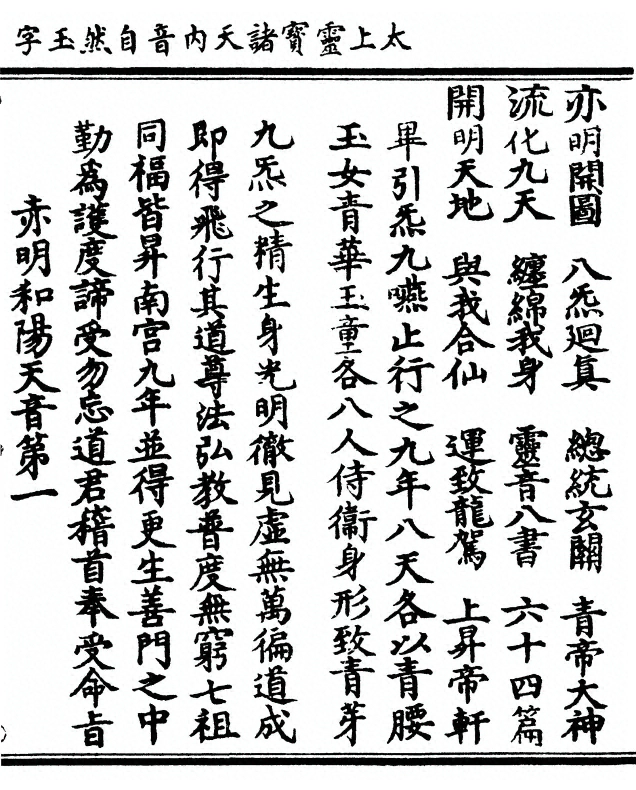 太上靈寶諸天內音自然玉字
亦明開圖 八炁廻真 總統玄關 青帝大神
流化九天 纏綿我身 靈音八書 六十四篇
開明天地 與我合仙 運致龍駕 上昇帝軒
畢引炁九嚥止行之九年八天各以青腰
玉女青華玉童各八人侍衞身形致青芽
九炁之精生身光明徹見虛無萬徧道成
即得飛行其道尊法弘教普度無窮七祖
同福皆昇南宮九年並得更生善門之中
勤為護度諦受勿忘道君稽首奉受命旨
赤明和陽天音第一